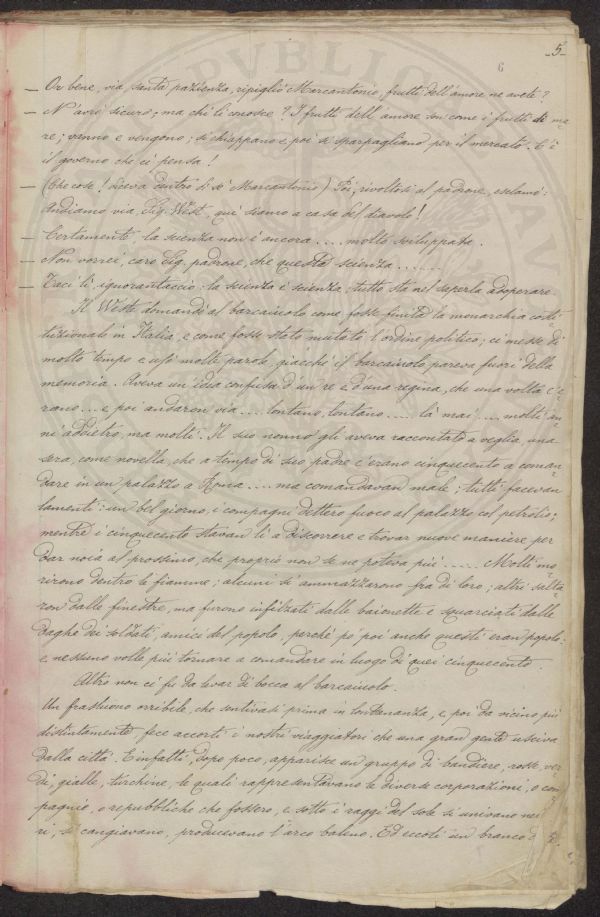 5-
6
— Or bene, via, santa pazienza, ripigliò Marcantonio, frutti dell'amore ne avete?
— N'avrò sicuro; ma chi li conosce? I frutti dell'amore son come i frutti di ma
re; vanno e vengono; si chiappano e poi si sparpagliano per il mercato. C'è
il governo che ci pensa!
— (Che cose! diceva dentro di sè Marcantonio) Poi, rivoltosi al padrone, esclamò:
Andiamo via, Sig. West, qui siamo a casa del diavolo!
— Certamente, la scienza non è ancora .... molto sviluppata.
— Non vorrei, caro Sig. padrone, che questa scienza .......
— Taci lì, ignorantaccio: la scienza è scienza; tutto sta nel saperla adoperare.
Il West domandò al barcaiuolo come fosse finita la monarchia costi-
tuzionale in Italia, e come fosse stato mutato l'ordine politico; ci messe di
molto tempo e usò molte parole, giacchè il barcaiuolo pareva fuori della
memoria. Aveva un'idea confusa d'un re e d'una regina, che una volta c'e-
rano ... e poi andaron via .... lontano, lontano ..... là mai .... molti an-
ni addietro, ma molti. Il suo nonno gli aveva raccontato a veglia, una
sera, come novella, che a tempo di suo padre c'erano cinquecento a coman-
dare in un palazzo a Roma .... ma comandavan male; tutti facevan
lamenti: un bel giorno, i compagni dettero fuoco al palazzo col petrolio;
mentre i cinquecento stavan lì a discorrere e trovar nuove maniere per
dar noia al prossimo, che proprio non se ne poteva più ..... Molti mo-
rirono dentro le fiamme; alcuni si ammazzarono fra di loro; altri salta-
ron dalle finestre, ma furono infilzati dalle baionette e squarciati dalle
daghe dei soldati, amici del popolo, perchè po' poi anche questi eran popolo:
e nessuno volle più tornare a comandare in luogo di quei cinquecento.
Altro non ci fu da levar di bocca al barcaiuolo.
Un frastuono orribile, che sentivasi prima in lontananza, e poi da vicino più
distintamente, fece accorti i nostri viaggiatori che una gran gente usciva
dalla città. E infatti, dopo poco, apparisce un gruppo di bandiere, rosse, ver-
di, gialle, turchine, le quali rappresentavano le diverse corporazioni, o com
pagnie, o repubbliche che fossero, e sotto i raggi del sole si univano
ri, si cangiavano, producevano l'arco baleno. Ed eccoti un branco